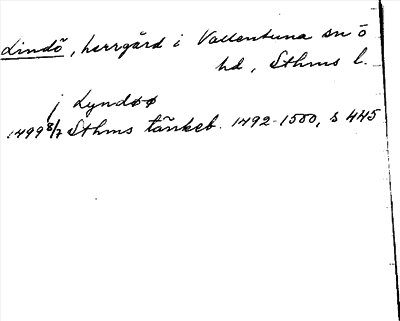 Lindö, herrgård i Vallentuna sn o
hd, Sthms l.
j Lyndøø
1499 8/7 Sthms tänkeb. 1492-1500, s 445